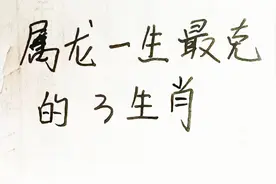 属龙一生最克
的3生肖